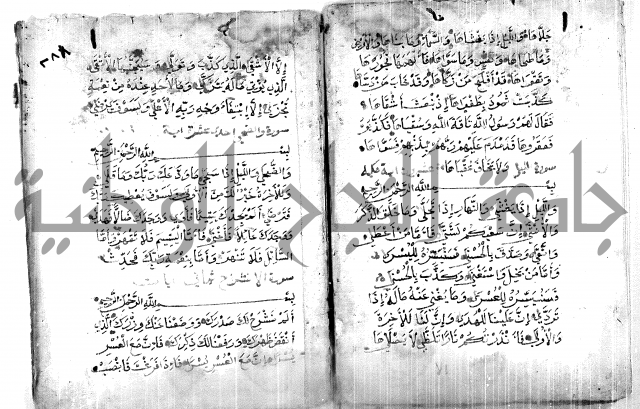 جلاها والليل إذا يغشاها والسماء وما بناها والأرض
وما طحاها ونفس وما سواها فألهمها فجورها
وتقواها قد أفلح من زكاها وقد خاب من دساها
كذبت ثمود بطغواها إذ انبعث أشقاها
فقال لهم رسول الله ناقة الله وسقياها فكذبوه
فعقروها فدمدم عليهم ربهم بذنبهم فسواها
ولا يخاف عقباها سورة الليل
بسم الله الرحمن الرحيم
والليل إذا يغشى والنهار إذا تجلى وما خلق الذكر
والأنثى إن سعيكم لشتى فأما من أعطى
واتقى وصدق بالحسنى فسنيسره لليسرى
وأما من بخل واستغنى وكذب بالحسنى
فسنيسره للعسرى وما يغني عنه ماله إذا
تردى إن علينا للهدى وإن لنا للآخرة
والأولى فأنذرتكم نارا تلظى لا يصلاها
إلا الأشقى الذي كذب وتولى وسيجنبها الأتقى
الذي يؤتي ماله يتزكى وما لأحد عنده من نعمة
تجزى إلا ابتغاء وجه ربه الأعلى ولسوف يرضى
سورة والضحى إحدى عشرة آية
بسم الله الرحمن الرحيم
والضحى والليل إذا سجى ما ودعك ربك وما قلى
وللآخرة خير لك من الأولى ولسوف يعطيك
فترضى ألم يجدك يتيما فآوى ووجدك ضالا فهدى
ووجدك عائلا فأغنى فأما اليتيم فلا تقهر وأما
السائل فلا تنهر وأما بنعمة ربك فحدث
سورة الانشراح ثماني آيات
بسم الله الرحمن الرحيم
ألم نشرح لك صدرك ووضعنا عنك وزرك الذي
أنقض ظهرك ورفعنا لك ذكرك فإن مع العسر
يسرا إن مع العسر يسرا فإذا فرغت فانصب
جامعة النجاح الوطنية